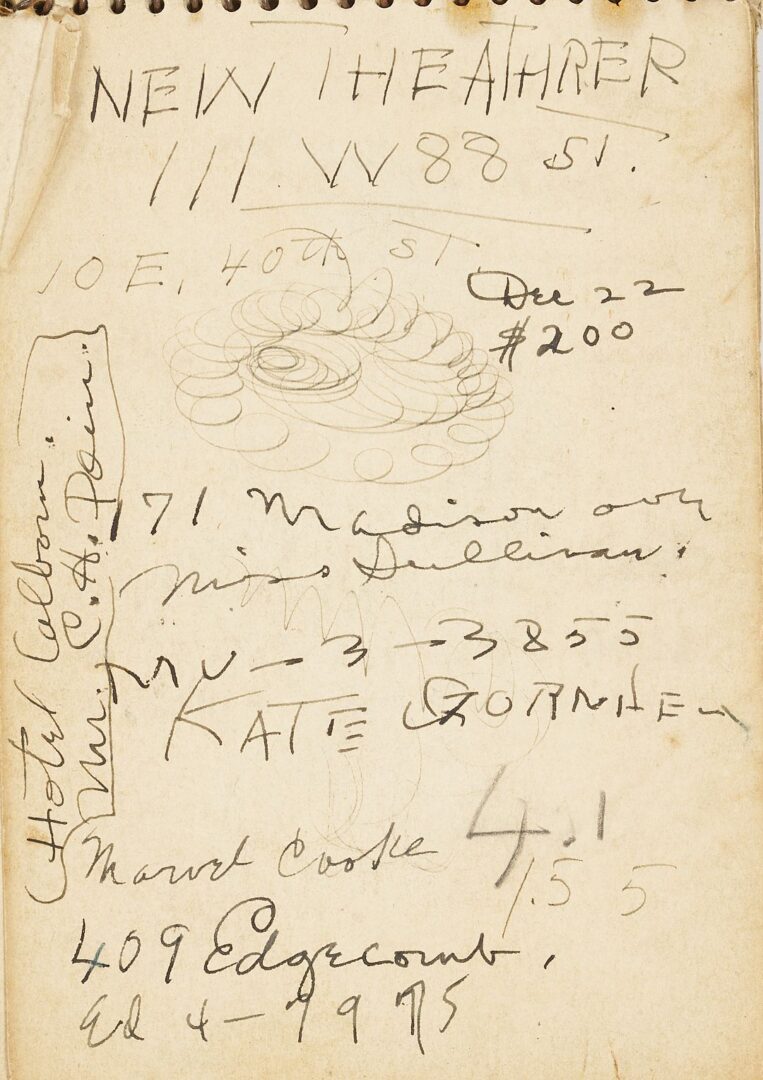 NEW THEATHRER
111 W 88 ST.
10 E. 40th ST.
Dec 22
$200
171 Madison ave
Miss Sullivan.
MU-3-3855
KATE
Marvel Cooke
4.1
1.55
409 Edgecomb.
Ed 4-7975
Hotel
Mr. C.H. Pain.